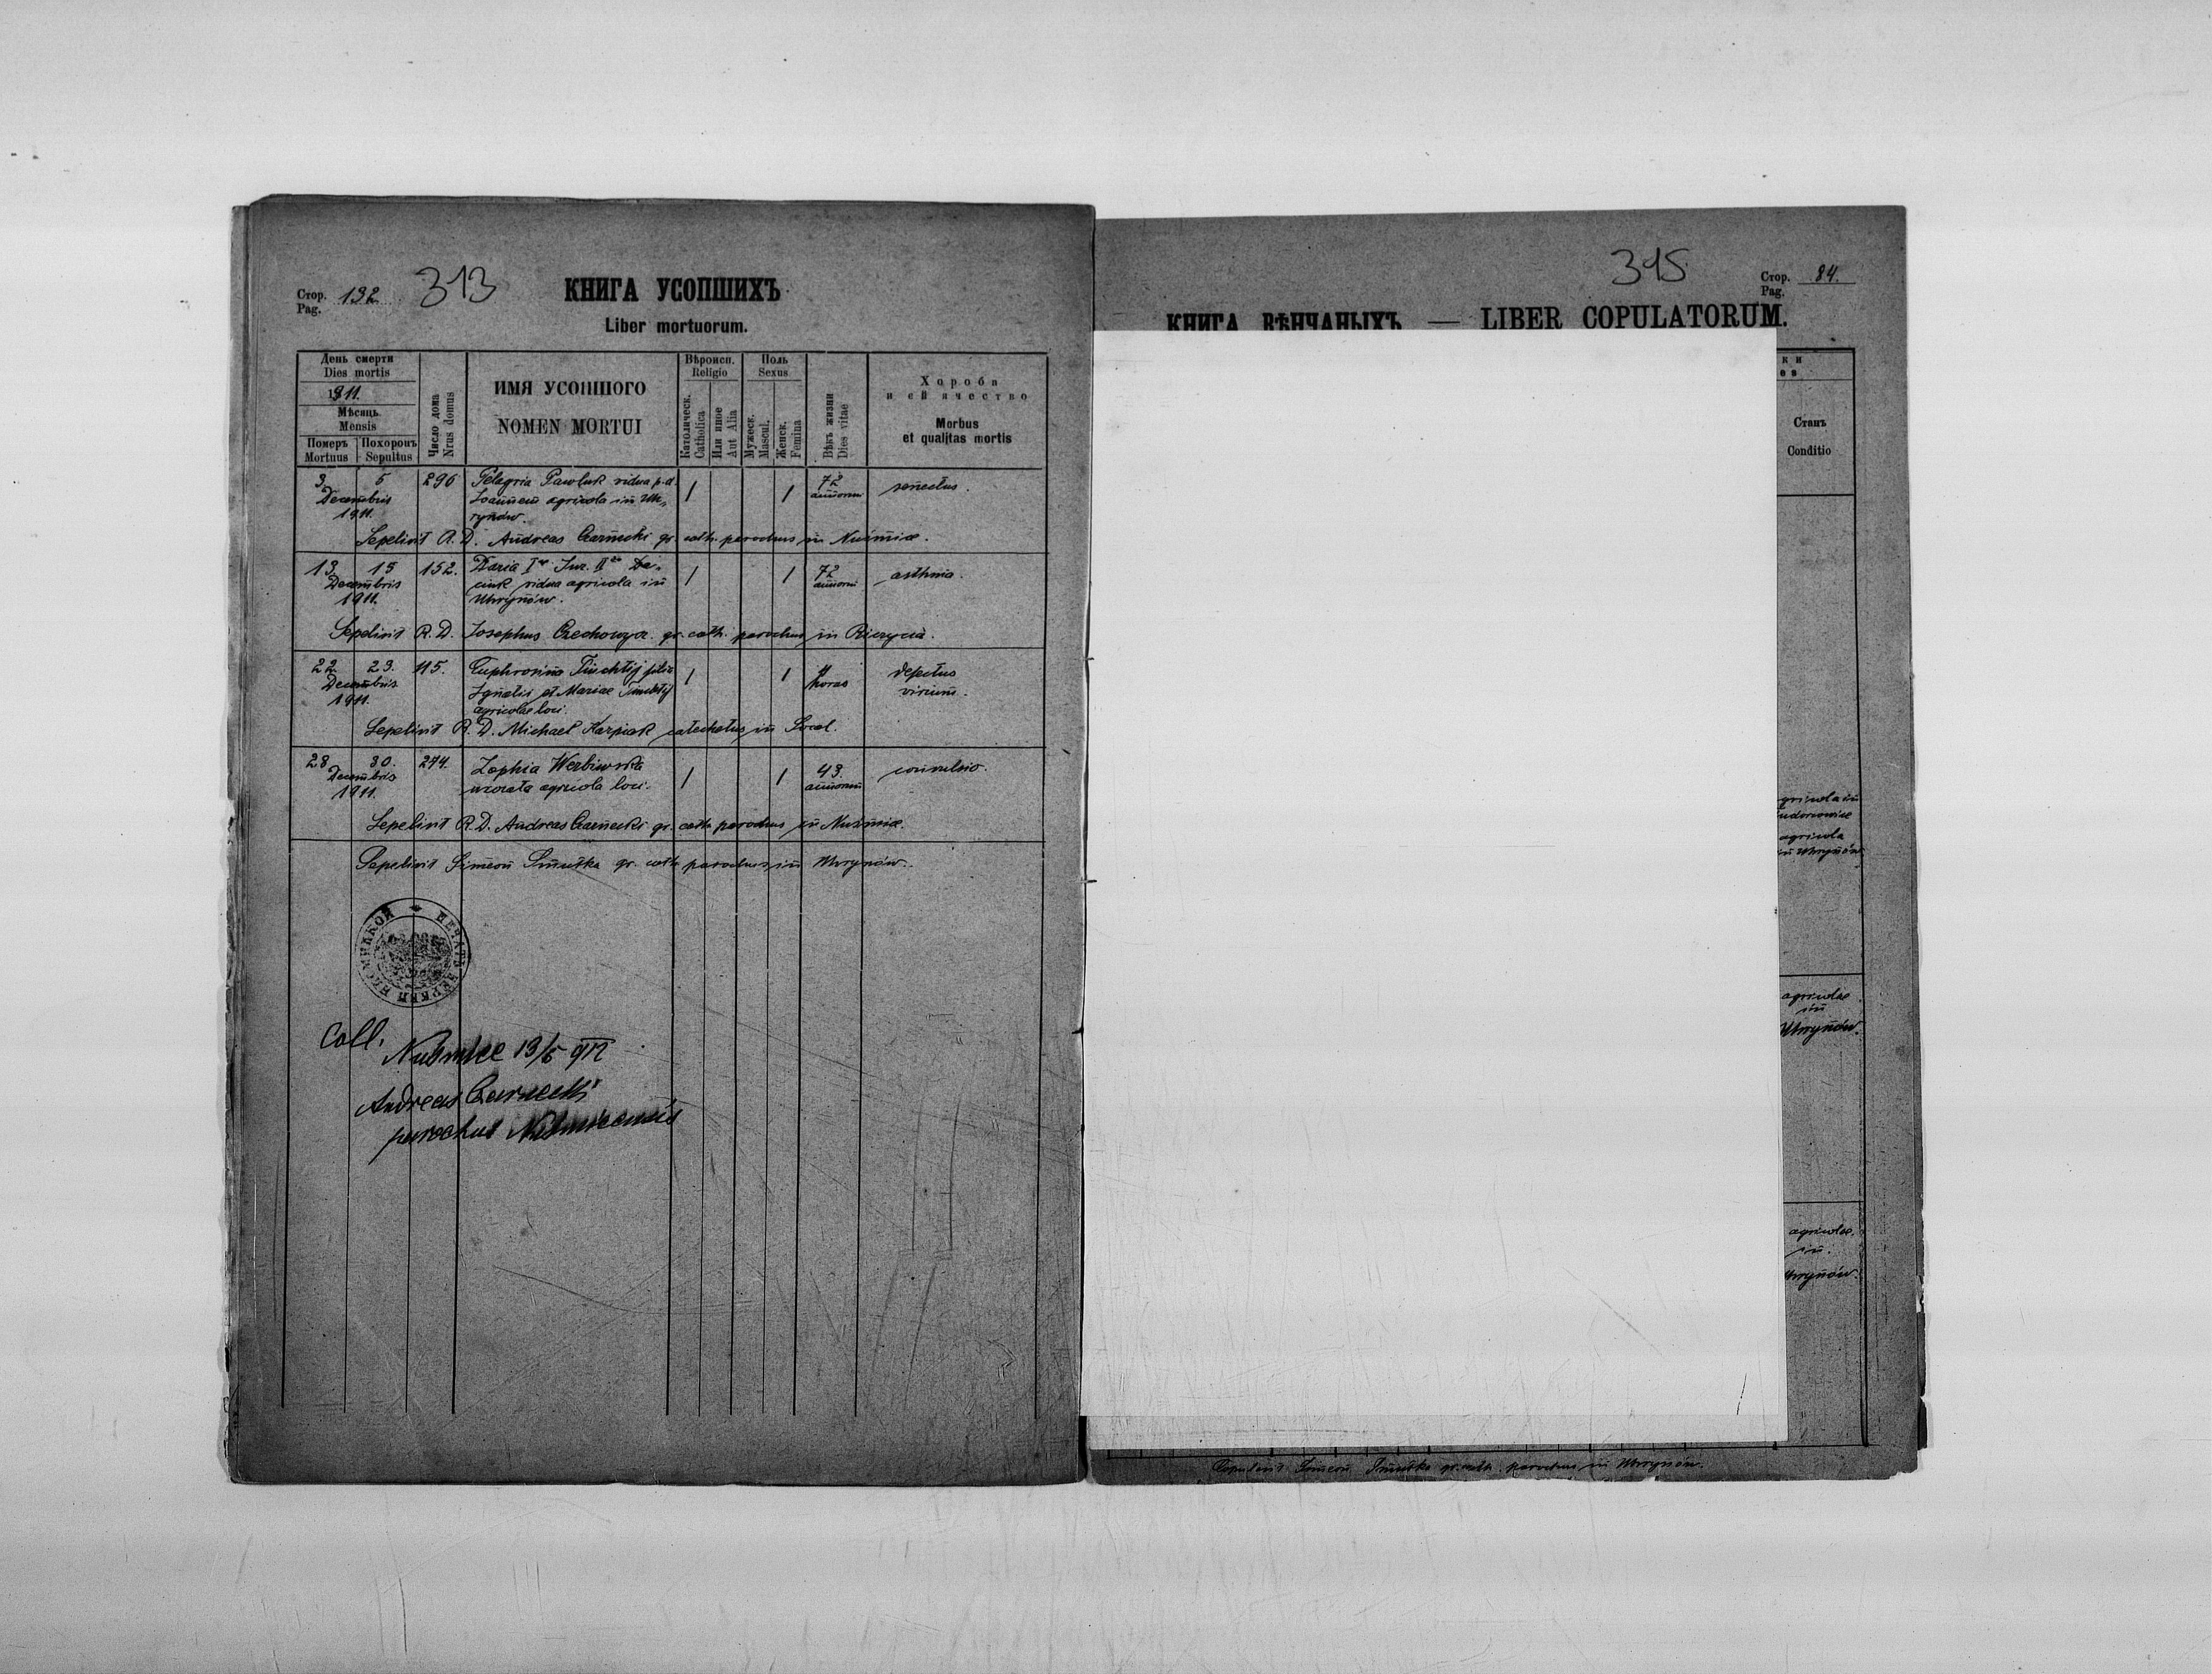 Стор. 132 313
Pag.
КНИГА УСОПШИХЪ
Liber mortuorum.
День смерти
Dies mortis
1911.
Мѣсяць
Mensis
Померъ
Mortuus
Похоронъ
Sepultus
Число дома
Nrus domus
ИМЯ УСОПШОГО
NOMEN MORTUI
Вѣроисп.
Religio
Католическ.
Catholica
Или иное
Aut Alia
Поль
Sexus
Мужеск.
Mascul.
Женск.
Femina
Вѣкъ жизни
Dies vitae
Хороба
и ей ячество
Morbus
et qualitas mortis
3 5 296 Pelagria Pawluk vidua p.d. 1 1 72 senectus.
Decembris Ioannem agricola in Uh- annorum
1911. rynów.
Sepelivit R.D. Andreas Czarnecki gr. cath. parochus in Nuśmice.
13 15 152. Daria Iᵒ Jur. IIᵒ 1 1 72 asthma.
Decembris vidua agricola in annorum
1911. Uhrynów.
Sepelivit R.D. Josephus gr. cath. parochus in
22 23. 115. Euphrosina filia 1 1 4 defectus
Decembris Ignatii et Mariae horas virium.
1911. agricolae loci.
Sepelivit R.D. Michael Karpiak catechetus in Socal.
28 30. 274. Zophia Werbiwska 1 1 43. convulsio.
Decembris uxorata agricola loci. annorum
1911.
Sepelivit R.D. Andreas Czarnecki gr. cath. parochus in Nuśmice.
Sepelivit Simeon Smutka gr. cath. parochus in Uhrynów.
ПЕЧАТЬ ЦЕРКВИ
Coll.
Nuśmice 13/5 912
Andreas Czarnecki
parochus
315 Стор. 84.
Pag.
КНИГА ВѢНЧАНЫХЪ — LIBER COPULATORUM.
Станъ
Conditio
agricola
in Uhrynów
agricolae
in
Uhrynów.
agricolae.
in.
Uhrynów.
Copulavit Simeon Smutka gr. cath. parochus in Uhrynów.